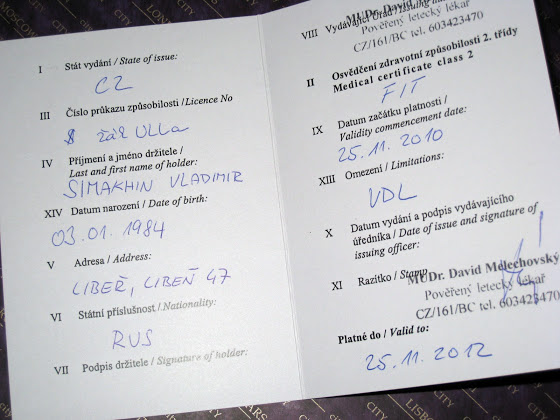 I Stát vydání / State of issue:
CZ
III Číslo průkazu způsobilosti / Licence No
žák ULLa
IV Příjmení a jméno držitele /
Last and first name of holder:
SIMAKHIN VLADIMIR
XIV Datum narození / Date of birth:
03.01.1984
V Adresa / Address:
LIBEŘ, LIBEŇ 47
VI Státní příslušnost / Nationality:
RUS
VII Podpis držitele / Signature of holder:
VIII Vydávající úřad / Issuing
MUDr. David
Pověřený letecký lékař
CZ/161/BC tel. 603423470
II Osvědčení zdravotní způsobilosti 2. třídy
Medical certificate class 2
FIT
IX Datum začátku platnosti /
Validity commencement date:
25.11.2010
XIII Omezení / Limitations:
VDL
X Datum vydání a podpis vydávajícího
úředníka / Date of issue and signature of
issuing officer:
XI Razítko / Stamp
MUDr. David Melechovský
Pověřený letecký lékař
CZ/161/BC tel. 603423470
Platné do / Valid to:
25.11.2012
MOSCOW
CITY
CITY
CITY
CITY